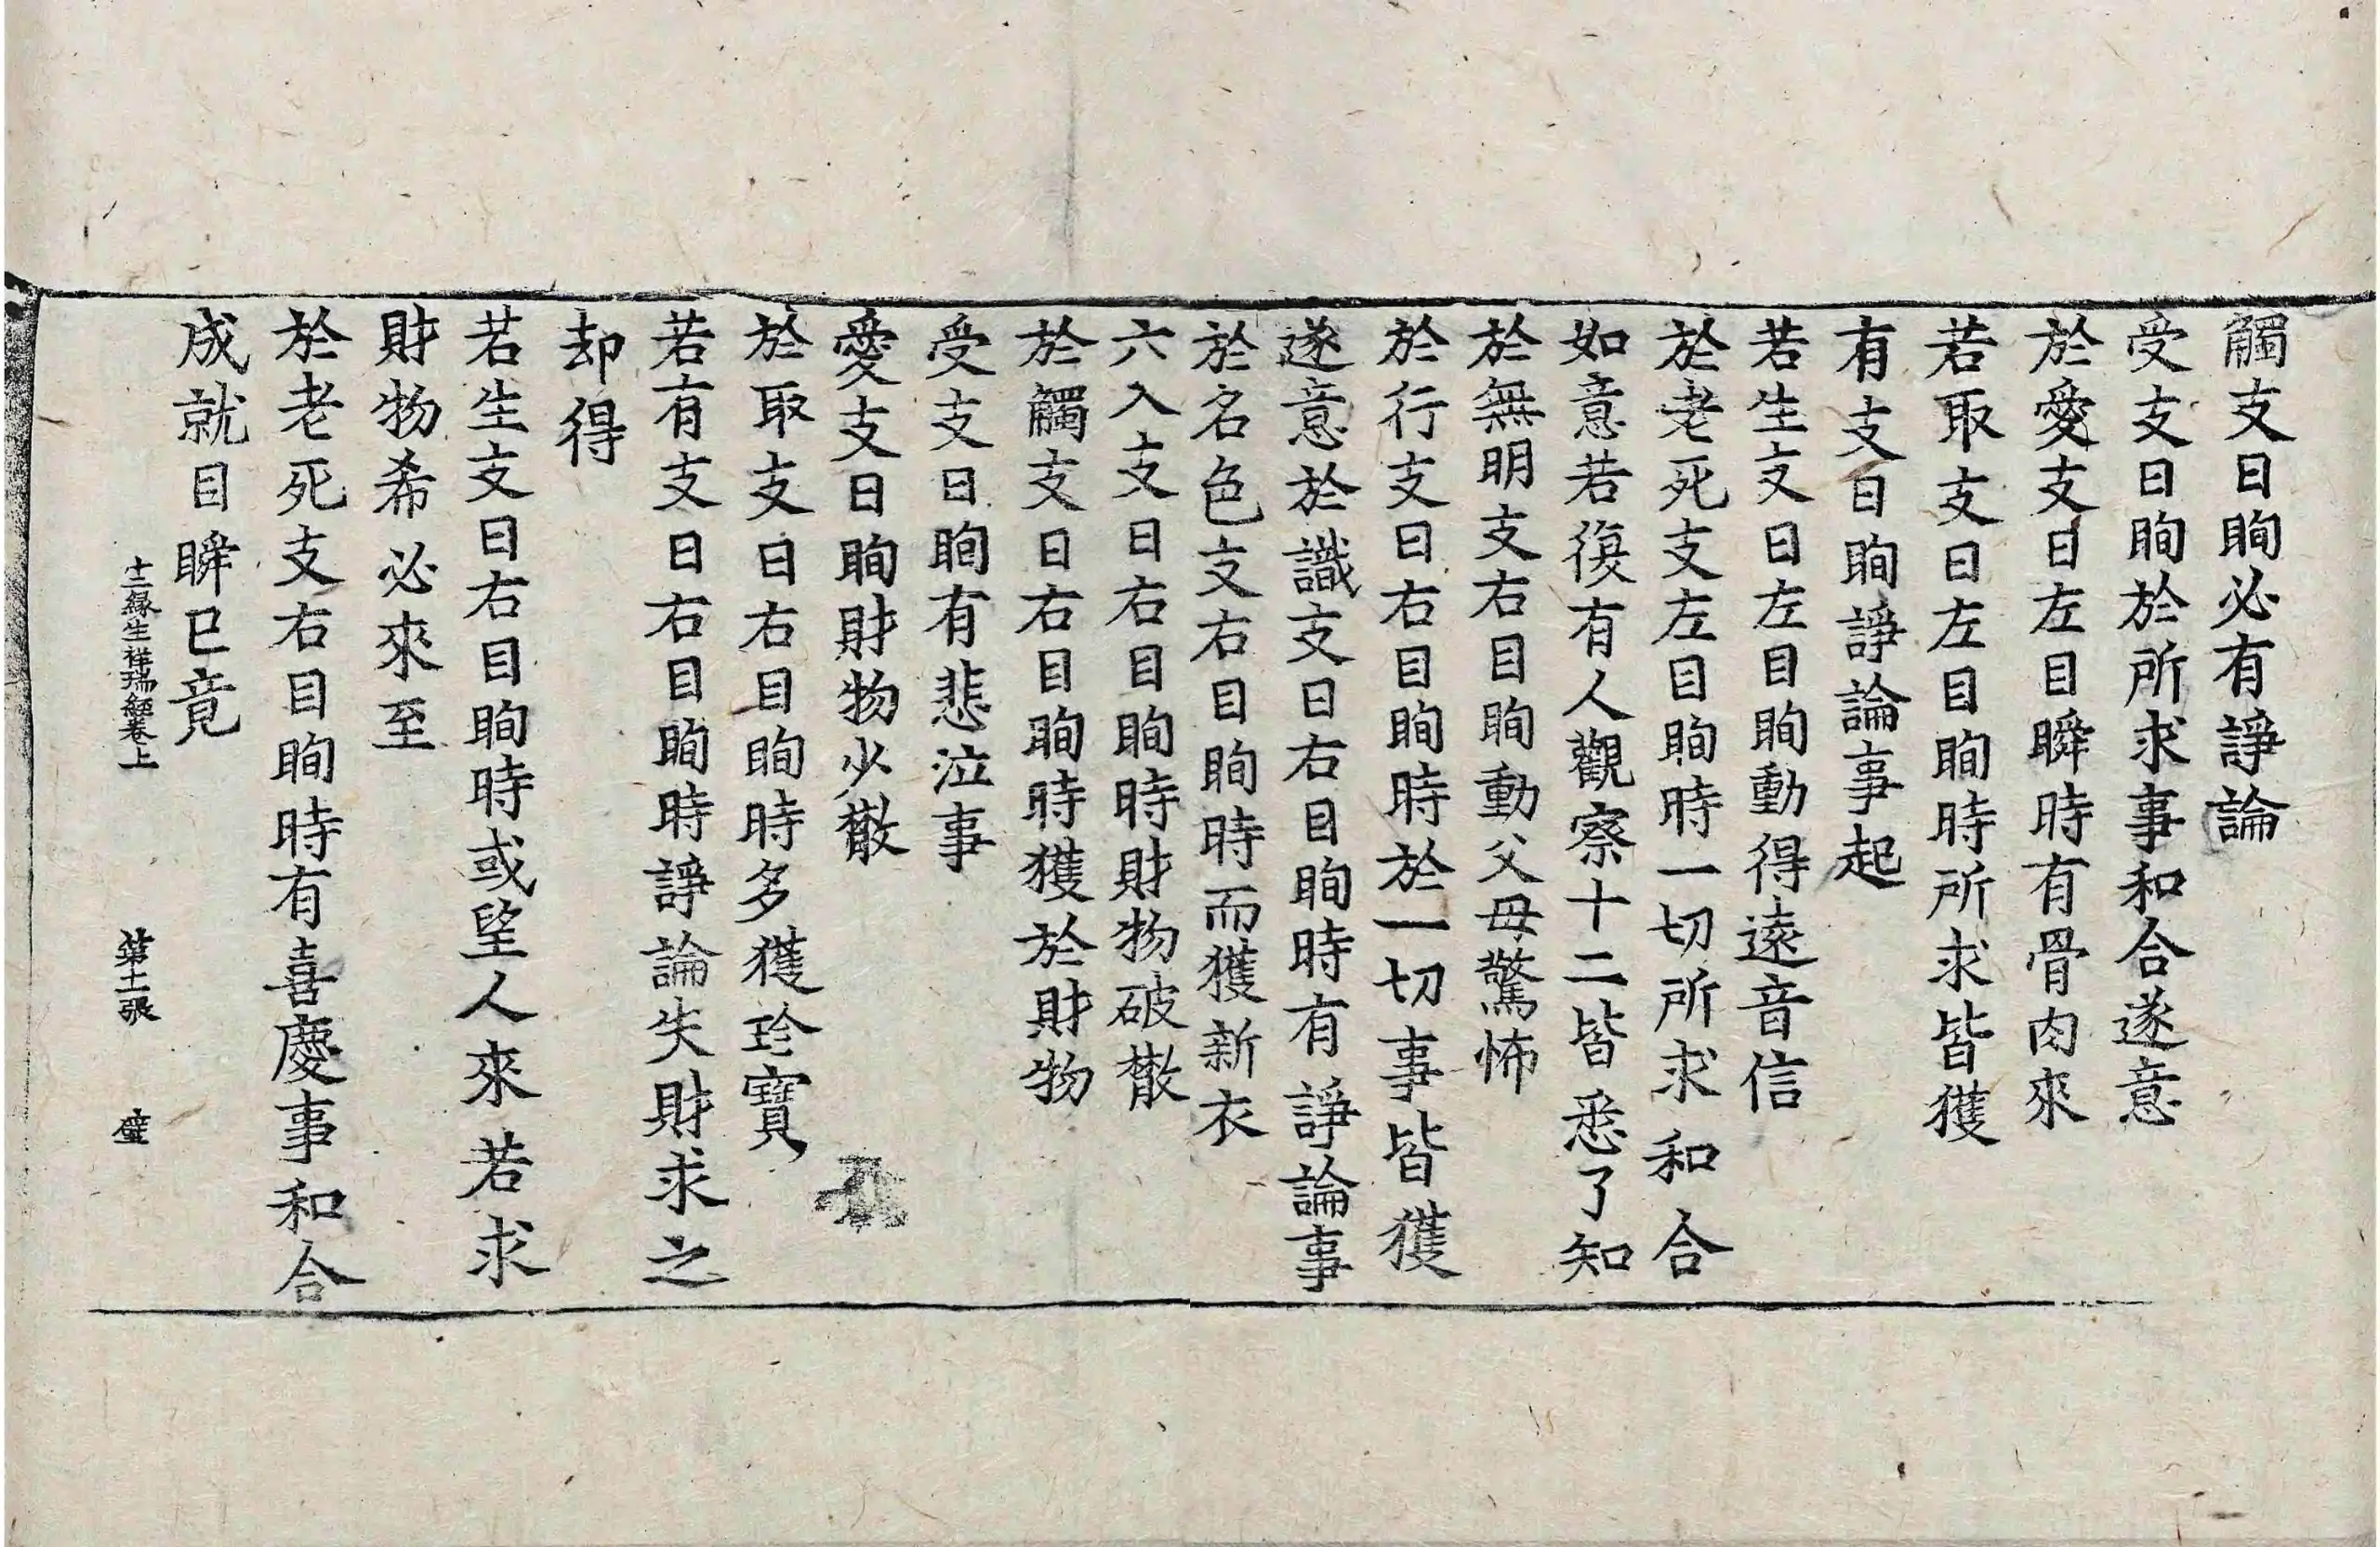 觸支日眴必有諍論
受支日眴於所求事和合遂意
於愛支日左目瞬時有骨肉來
若取支日左目眴時所求皆獲
有支日眴諍論事起
若生支日左目眴動得遠音信
於老死支左目眴時一切所求和合
如意若復有人觀察十二皆悉了知
於無明支右目眴動父母驚怖
於行支日右目眴時於一切事皆獲
遂意於識支日右目眴時有諍論事
於名色支右目眴時而獲新衣
六入支日右目眴時財物破散
於觸支日右目眴時獲於財物
受支日眴有悲泣事
愛支日眴財物少散
於取支日右目眴時多獲珍寶
若有支日右目眴時諍論失財求之
却得
若生支日右目眴時或望人來若求
財物希必來至
於老死支右目眴時有喜慶事和合
成就目瞬已竟
十二緣生祥瑞經卷上 第十一張 璧